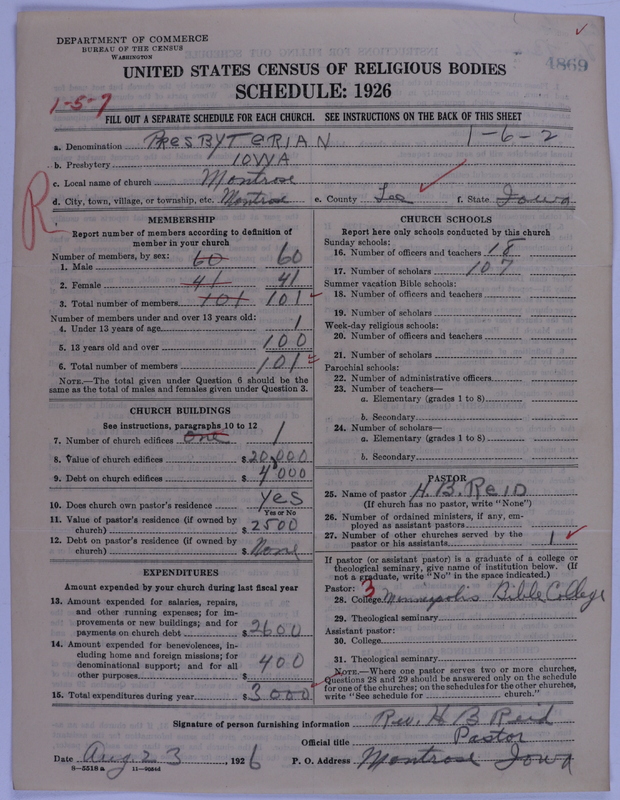 DEPARTMENT OF COMMERCE
BUREAU OF THE CENSUS
WASHINGTON
4869
UNITED STATES CENSUS OF RELIGIOUS BODIES
SCHEDULE: 1926
1-5-7
FILL OUT A SEPARATE SCHEDULE FOR EACH CHURCH. SEE INSTRUCTIONS ON THE BACK OF THIS SHEET
a. Denomination PRESBYTERIAN 1-6-2
b. Presbytery IOWA
c. Local name of church Montrose
d. City, town, village, or township, etc. Montrose e. County Lee f. State Iowa
R
MEMBERSHIP
Report number of members according to definition of
member in your church
Number of members, by sex:
1. Male 60 60
2. Female 41 41
3. Total number of members 101 101
Number of members under and over 13 years old:
4. Under 13 years of age 1
5. 13 years old and over 100
6. Total number of members 101
NOTE.—The total given under Question 6 should be the
same as the total of males and females given under Question 3.
CHURCH BUILDINGS
See instructions, paragraphs 10 to 12
7. Number of church edifices one 1
8. Value of church edifices $20,000
9. Debt on church edifices $4000
10. Does church own pastor's residence Yes
Yes or No
11. Value of pastor's residence (if owned by
church) $2500
12. Debt on pastor's residence (if owned by
church) $None
EXPENDITURES
Amount expended by your church during last fiscal year
13. Amount expended for salaries, repairs,
and other running expenses; for im-
provements or new buildings; and for
payments on church debt $2600
14. Amount expended for benevolences, in-
cluding home and foreign missions; for
denominational support; and for all
other purposes $400
15. Total expenditures during year $3000
CHURCH SCHOOLS
Report here only schools conducted by this church
Sunday schools:
16. Number of officers and teachers 18
17. Number of scholars 107
Summer vacation Bible schools:
18. Number of officers and teachers
19. Number of scholars
Week-day religious schools:
20. Number of officers and teachers
21. Number of scholars
Parochial schools:
22. Number of administrative officers
23. Number of teachers—
a. Elementary (grades 1 to 8)
b. Secondary
24. Number of scholars—
a. Elementary (grades 1 to 8)
b. Secondary
PASTOR
25. Name of pastor H. B. REID
(If church has no pastor, write "None")
26. Number of ordained ministers, if any, em-
ployed as assistant pastors
27. Number of other churches served by the
pastor or his assistants 1
If pastor (or assistant pastor) is a graduate of a college or
theological seminary, give name of institution below. (If
not a graduate, write "No" in the space indicated.)
Pastor: 3
28. College Minneapolis Bible College
29. Theological seminary
Assistant pastor:
30. College
31. Theological seminary
NOTE.—Where one pastor serves two or more churches,
Questions 28 and 29 should be answered only on the schedule
for one of the churches; on the schedules for the other churches,
write "See schedule for church."
Signature of person furnishing information Rev. H B Reid
Official title Pastor
Date Aug. 23, 1926 P. O. Address Montrose Iowa
8—5518a